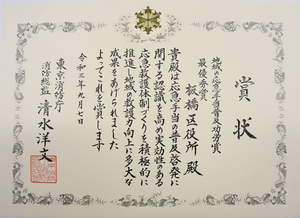 賞状
地域の応急手当普及功労賞
最優秀賞
板橋区役所 殿
貴殿は応急手当の普及啓発に
関する認識を高め実効性のある
応急救護体制づくりを積極的に
推進し地域の救護力向上に多大な
成果をあげられました
よってこれを賞します
令和三年九月七日
東京消防庁
消防総監 清水洋文